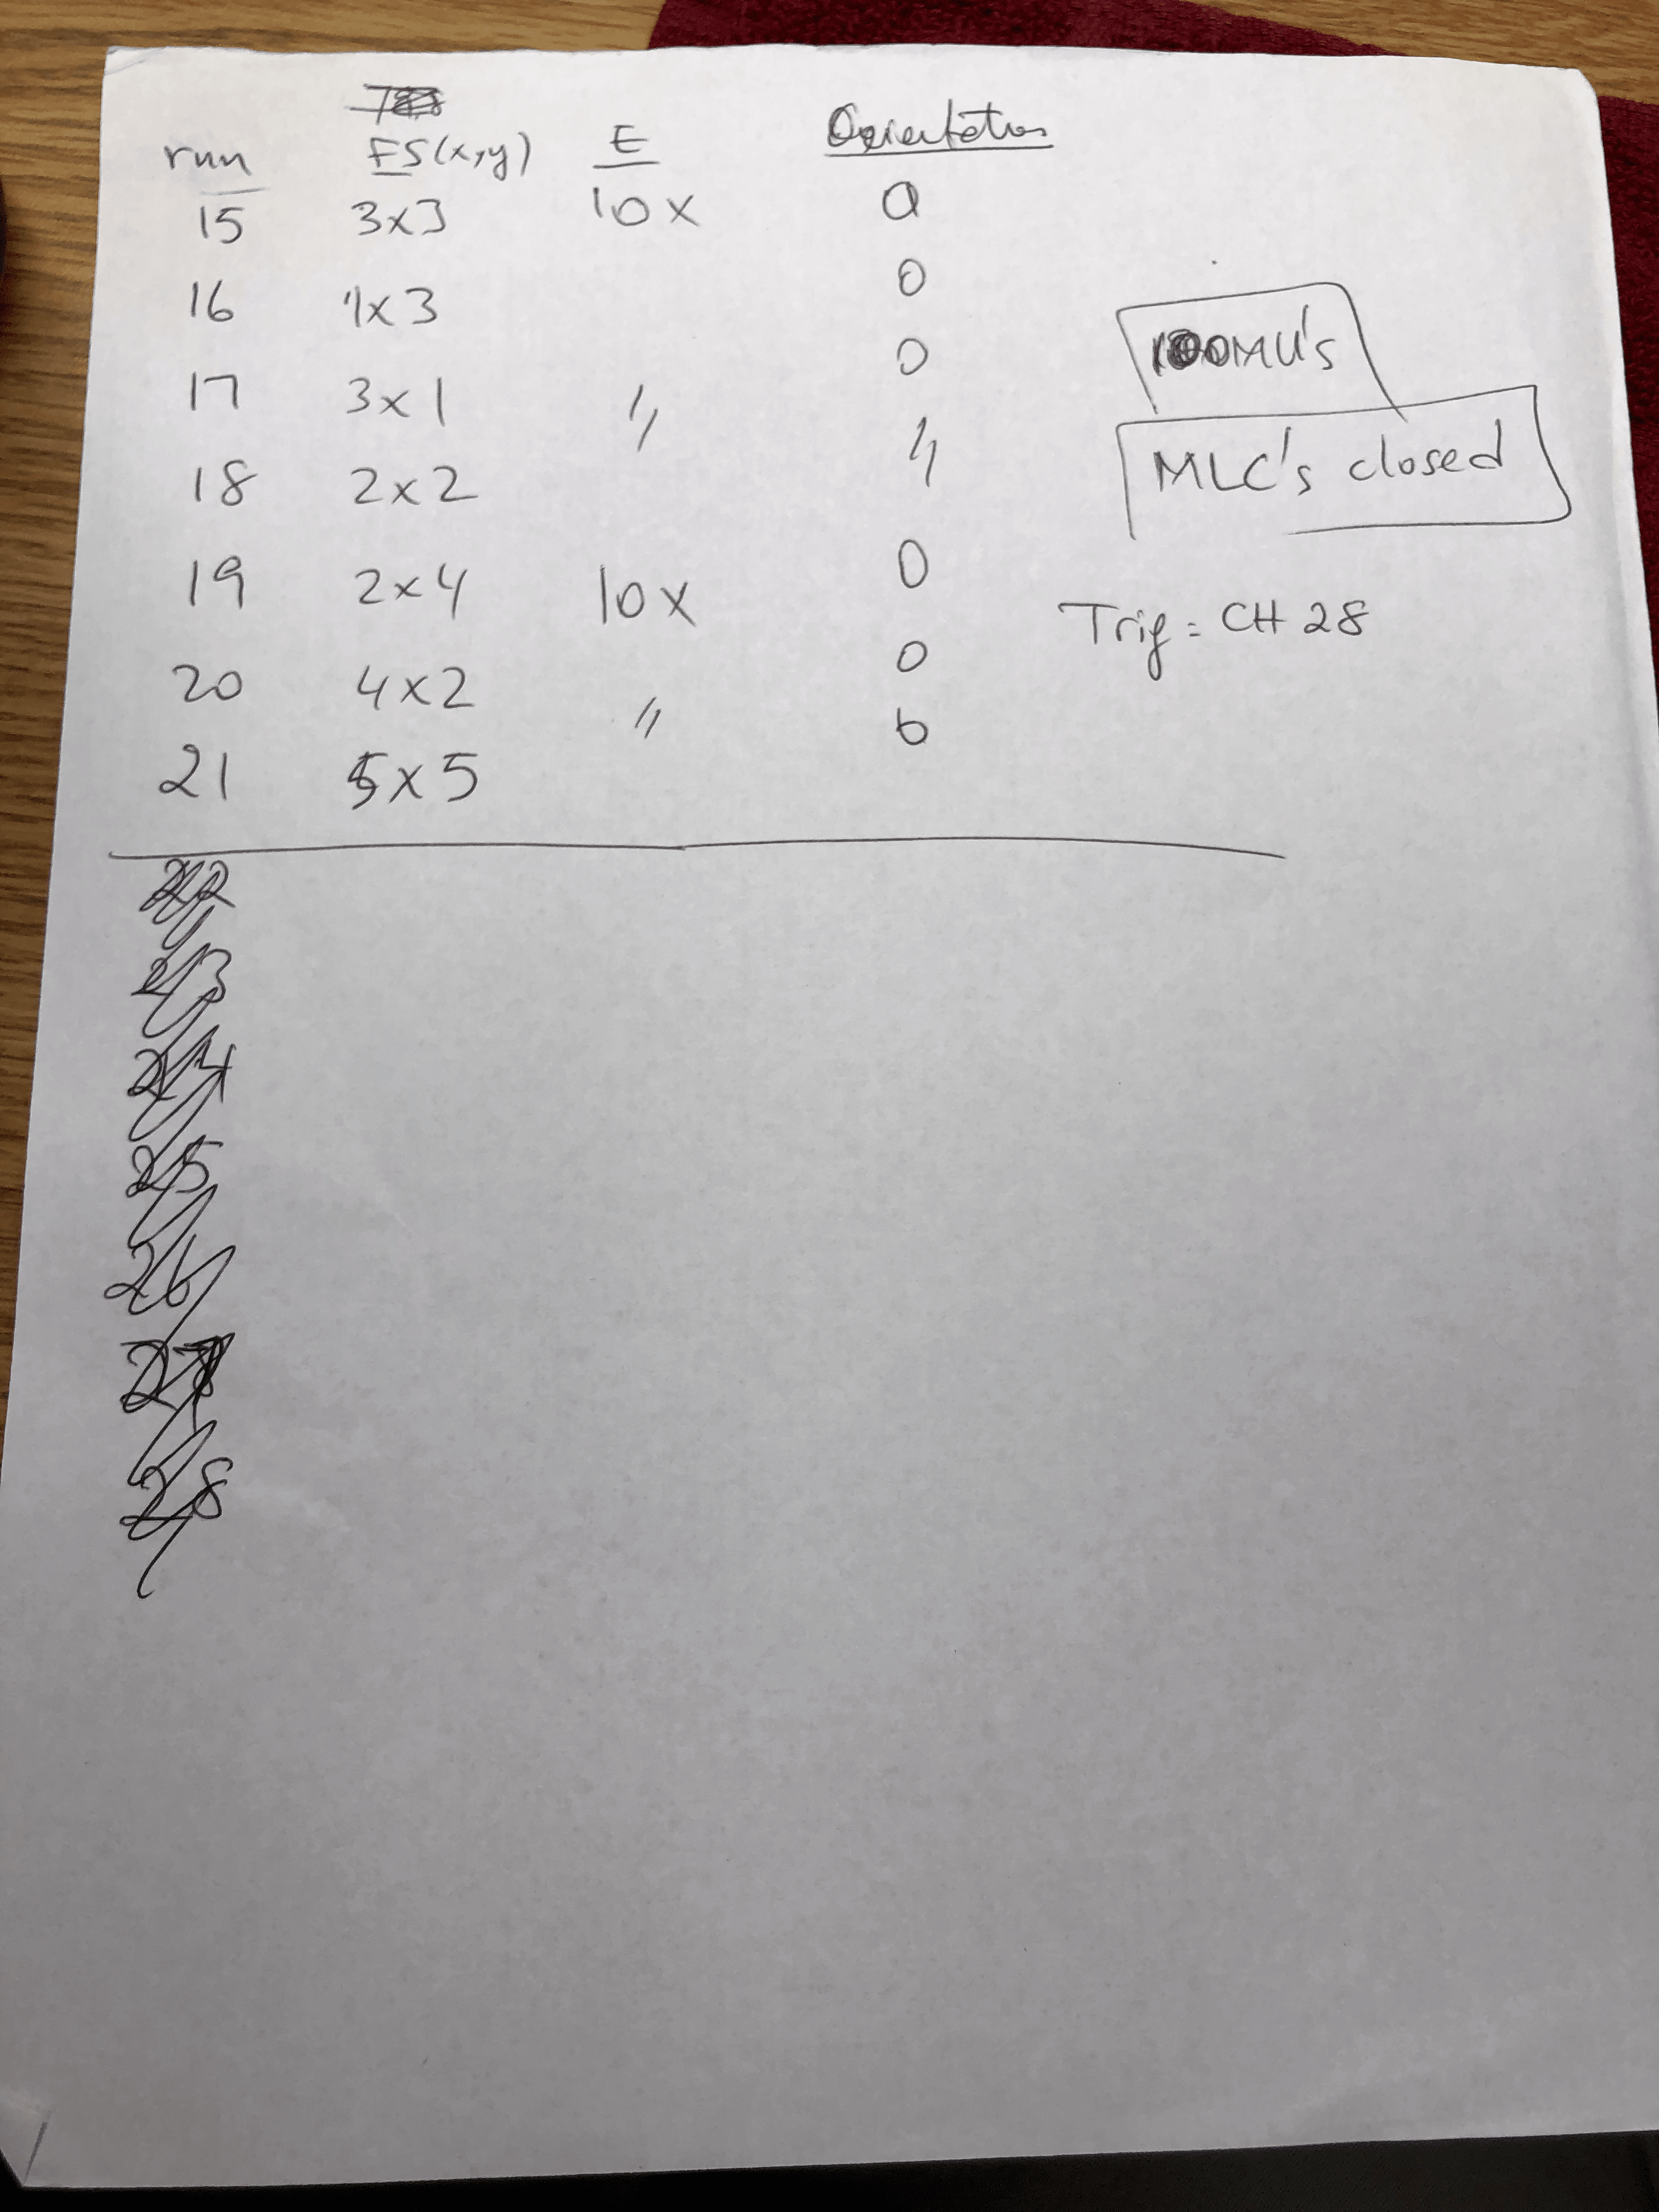 run FS(x,y) E Orientation
15 3x3 10x 0
16 1x3 0
17 3x1 〃 0
18 2x2 〃
19 2x4 10x 0
20 4x2 〃 0
21 5x5 0
100MU's
MLC's closed
Trig = CH 28
22
23
24
25
26
27
28